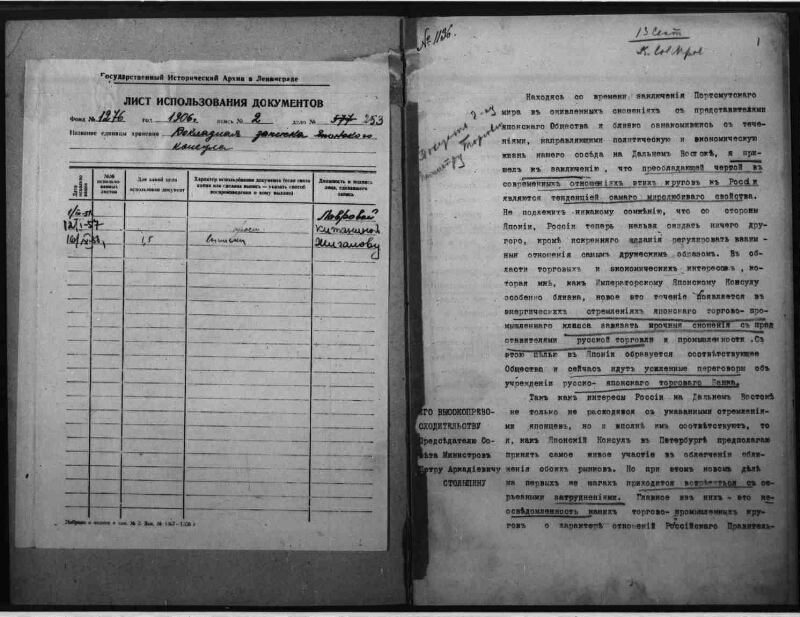 Государственный Исторический Архив в Ленинграде
ЛИСТ ИСПОЛЬЗОВАНИЯ ДОКУМЕНТОВ
Фонд № 1276 год 1906 г. опись № 2 дело № 577 253
Название единицы хранения Докладная записка Японского
консула
Дата использования
№№ использованных листов
Для какой цели использован документ
Характер использования документов (были сняты копии или сделаны выписки — указать способ воспроизведения и кому выдано)
Должность и подпись лица, сделавшего запись
Лавровой
12/I-57 Китаниной
1,5 выписки Жигалову
№ 1136.
13 Сент
1
Находясь со времени заключенія Портсмутскаго
мира въ оживленныхъ сношеніяхъ съ представителями
Японскаго Общества и близко ознакомившись съ тече-
ніями, направляющими политическую и экономическую
жизнь нашего сосѣда на Дальнемъ Востокѣ, я при-
шелъ къ заключенію, что преобладающей чертой въ
современныхъ отношеніяхъ этихъ круговъ къ Россіи
являются тенденціей самаго миролюбиваго свойства.
Не подлежитъ никакому сомнѣнію, что со стороны
Японіи, Россіи теперь нельзя ожидать ничего дру-
гого, кромѣ искренняго желанія регулировать взаим-
ныя отношенія самымъ дружескимъ образомъ. Въ об-
ласти торговыхъ и экономическихъ интересовъ, ко-
торая мнѣ, какъ Императорскому Японскому Консулу
особенно близка, новое это теченіе появляется въ
энергическихъ стремленіяхъ японскаго торгово-про-
мышленнаго класса завязать прочныя сношенія съ пред
ставителями русской торговли и промышленности. Съ
этою цѣлью въ Японіи образуется соотвѣтствующее
Общество и сейчасъ идутъ усиленные переговоры объ
учрежденіи русско-японскаго торговаго Банка.
Такъ какъ интересы Россіи на Дальнемъ Востокѣ
не только не расходятся съ указанными стремленія-
ми японцевъ, но и вполнѣ имъ соотвѣтствуютъ, то
я, какъ Японскій Консулъ въ Петербургѣ предполагаю
принять самое живое участіе въ облегченіи сбли-
женія обоихъ рынковъ. Но при этомъ новомъ дѣлѣ
на первыхъ же шагахъ приходится встрѣчаться съ се-
рьезными затрудненіями. Главное изъ нихъ - это не-
освѣдомленность нашихъ торгово-промышленныхъ кру-
говъ о характерѣ отношеній Россійскаго Правитель-
ЕГО ВЫСОКОПРЕВО-
СХОДИТЕЛЬСТВУ
Предсѣдателю Со-
вѣта Министровъ
Петру Аркадіевичу
СТОЛЫПИНУ